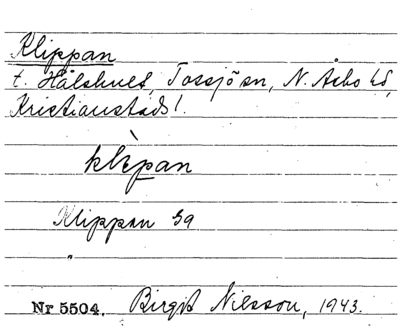 Klippan
t. Hålshult, Tossjön, N. Åsbo hd,
Kristianstads l.
klìpan
Klippan Ga
"
Nr 5504. Birgit Nilsson, 1943.